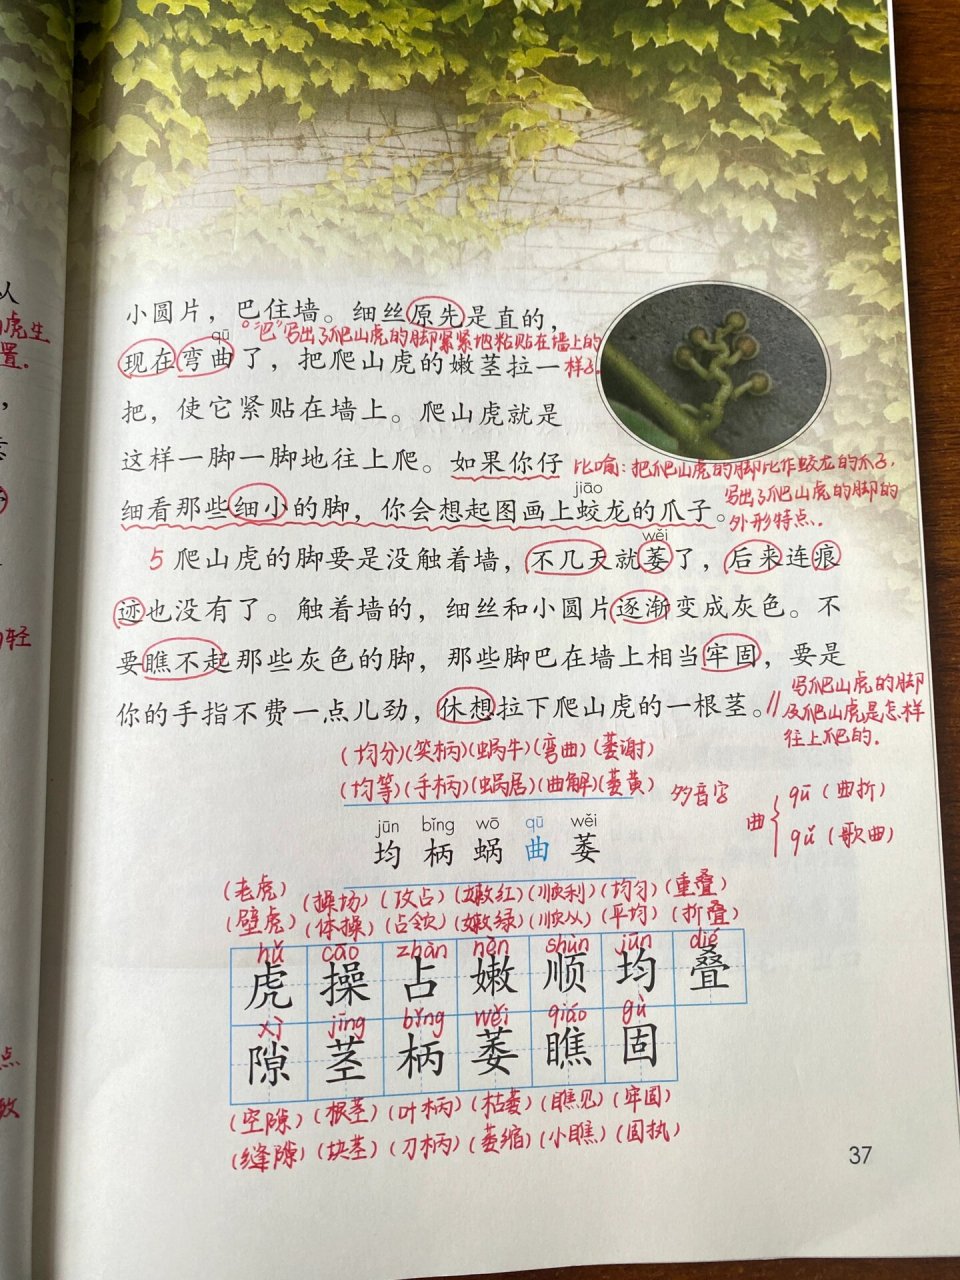 小圆片，巴住墙。细丝原先是直的，
qū
。“巴”写出了爬山虎的脚紧紧地粘贴在墙上的
样子。
现在弯曲了，把爬山虎的嫩茎拉一
把，使它紧贴在墙上。爬山虎就是
这样一脚一脚地往上爬。如果你仔
比喻：把爬山虎的脚比作蛟龙的爪子，
写出了爬山虎的脚的
外形特点．
jiāo
细看那些细小的脚，你会想起图画上蛟龙的爪子。
wěi
5 爬山虎的脚要是没触着墙，不几天就萎了，后来连痕
迹也没有了。触着墙的，细丝和小圆片逐渐变成灰色。不
要瞧不起那些灰色的脚，那些脚巴在墙上相当牢固，要是
你的手指不费一点儿劲，休想拉下爬山虎的一根茎。
// 写爬山虎的脚
及爬山虎是怎样
往上爬的．
(均分)(笑柄)(蜗牛)(弯曲)(萎谢)
(均等)(手柄)(蜗居)(曲解)(萎黄)
多音字
曲 qū (曲折)
qǔ (歌曲)
jūn bǐng wō qū wěi
均 柄 蜗 曲 萎
(老虎) (操场) (攻占) (嫩红) (顺利) (均匀) (重叠)
(壁虎) (体操) (占领) (嫩绿) (顺从) (平均) (折叠)
hǔ cāo zhàn nèn shùn jūn dié
虎 操 占 嫩 顺 均 叠
xì jīng bǐng wěi qiáo gù
隙 茎 柄 萎 瞧 固
(空隙) (根茎) (叶柄) (枯萎) (瞧见) (牢固)
(缝隙) (块茎) (刀柄) (萎缩) (小瞧) (固执)
37
从
虎生
置．
，
轻
点